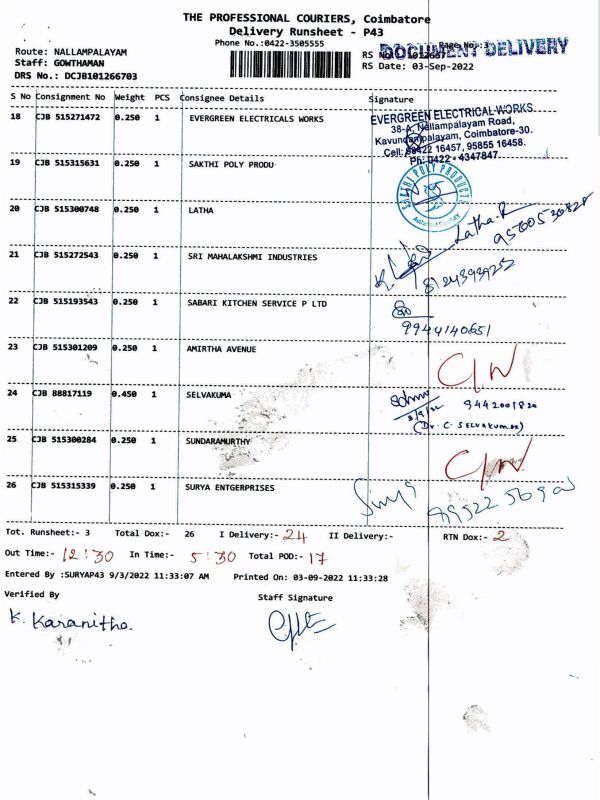 THE PROFESSIONAL COURIERS, Coimbatore
Delivery Runsheet - P43
Phone No.:0422-3505555
Page No.:3
DOCUMENT DELIVERY
Route: NALLAMPALAYAM
RS No.:
Staff: GOWTHAMAN
RS Date: 03-Sep-2022
DRS No.: DCJB101266703
S No Consignment No Weight PCS Consignee Details Signature
18 CJB 515271472 0.250 1 EVERGREEN ELECTRICALS WORKS
EVERGREEN ELECTRICAL WORKS
38-A, Nallampalayam Road,
Kavundampalayam, Coimbatore-30.
Cell: 98422 16457, 95855 16458.
Ph: 0422 - 4347847
19 CJB 515315631 0.250 1 SAKTHI POLY PRODU
SAKTHI POLY PRODUCTS
20 CJB 515300748 0.250 1 LATHA
Latha.R
21 CJB 515272543 0.250 1 SRI MAHALAKSHMI INDUSTRIES
22 CJB 515193543 0.250 1 SABARI KITCHEN SERVICE P LTD
9944140651
23 CJB 515301209 0.250 1 AMIRTHA AVENUE
24 CJB 88817119 0.450 1 SELVAKUMA
3/9/22 9442001820
(Dr. C. SELVAKUMAR)
25 CJB 515300284 0.250 1 SUNDARAMURTHY
26 CJB 515315339 0.250 1 SURYA ENTGERPRISES
Tot. Runsheet:- 3 Total Dox:- 26 I Delivery:- 24 II Delivery:- RTN Dox:- 2
Out Time:- 12:30 In Time:- 5:30 Total POD:- 17
Entered By :SURYAP43 9/3/2022 11:33:07 AM Printed On: 03-09-2022 11:33:28
Verified By Staff Signature
K. Karanitha.